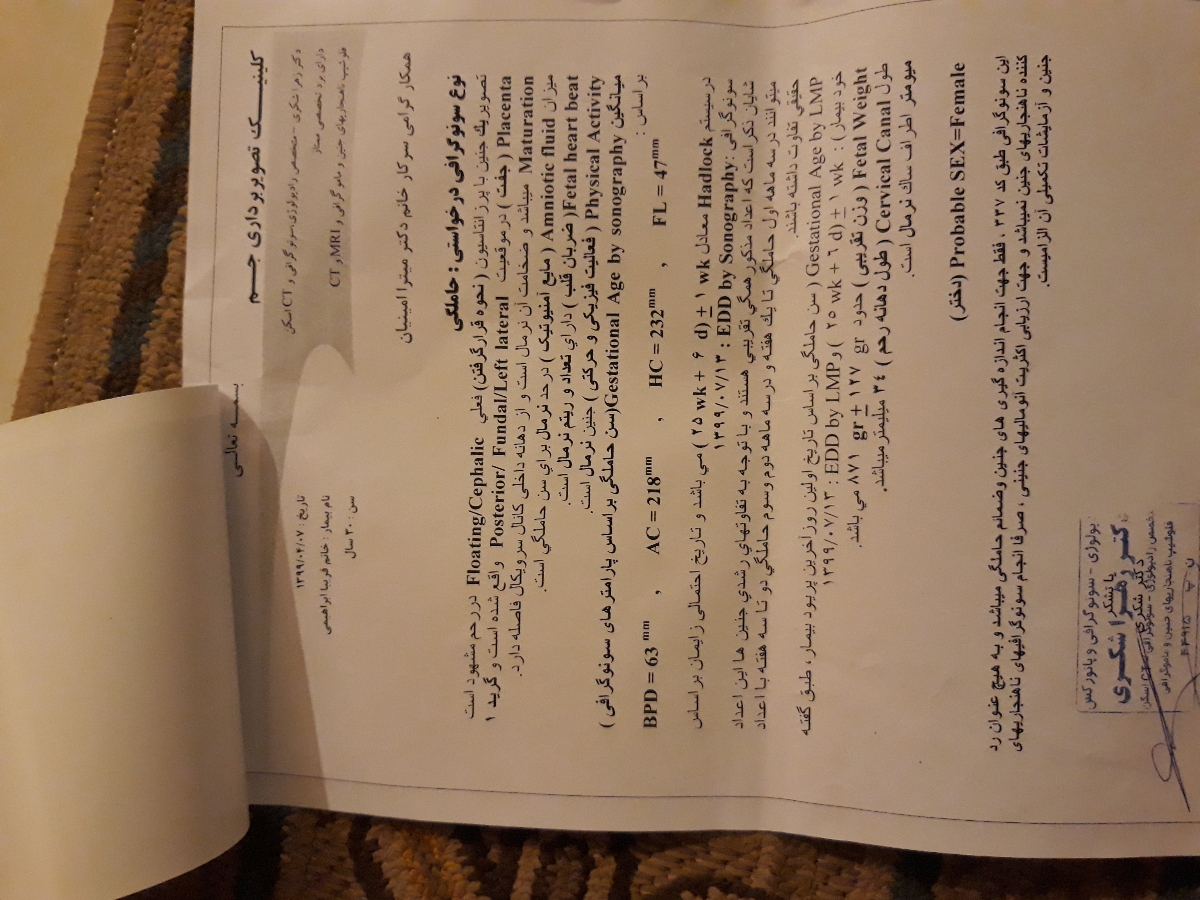 بسمه تعالی
کلینیک تصویربرداری جم
دکتر زهرا شکری - متخصص رادیولوژی، سونوگرافی و CT اسکن
دارای برد تخصصی ممتاز
فلوشیپ ناهنجاریهای جنین و مامو گرافی و MRI و CT
تاریخ : ۱۳۹۹/۰۴/۰۷
نام بیمار : خانم فریبا ابراهیمی
سن : ۳۰ سال
همکار گرامی سرکار خانم دکتر میترا امینیان
نوع سونوگرافی درخواستی : حاملگی
تصویر یک جنین با پرزانتاسیون (نحوه قرارگرفتن) فعلی Floating/Cephalic دررحم مشهود است
Placenta ( جفت ) در موقعیت Posterior/ Fundal/Left lateral واقع شده است و گرید ۱
Maturation میباشد و ضخامت آن نرمال است و از دهانه داخلی کانال سرویکال فاصله دارد.
میزان Amniotic fluid ( مایع آمنیوتیک ) درحد نرمال برای سن حاملگی است.
Fetal heart beat ( ضربان قلب ) دارای تعداد و ریتم نرمال است.
Physical Activity ( فعالیت فیزیکی و حرکتی ) جنین نرمال است.
میانگین Gestational Age by sonography(سن حاملگی براساس پارامترهای سونوگرافی )
بر اساس :
BPD = 63 mm , AC = 218mm , HC = 232mm , FL = 47mm
درسیستم Hadlock معادل ۲۵ wk + ۶ d) ± ۱ wk ) می باشد و تاریخ احتمالی زایمان بر اساس
سونوگرافی EDD by Sonography: ۱۳۹۹/۰۷/۱۳
شایان ذکر است که اعداد مذکور همگی تقریبی هستند و با توجه به تفاوتهای رشدی جنین ها این اعداد
میتوانند درسه ماهه اول حاملگی تا یک هفته و درسه ماهه دوم وسوم حاملگی دو تا سه هفته با اعداد
حقیقی تفاوت داشته باشند.
Gestational Age by LMP (سن حاملگی بر اساس تاریخ اولین روزآخرین پریود بیمار، طبق گفته
خود بیمار) : ۲۵ wk + ۶ d) ± ۱ wk ) و EDD by LMP : ۱۳۹۹/۰۷/۱۳
Fetal Weight ( وزن تقریبی ) حدود ۸۷۱ gr ± ۱۲۷ gr می باشد.
طول Cervical Canal ( طول دهانه رحم ) ۳۴ میلیمتر میباشد.
میومتر اطراف ساک نرمال است.
Probable SEX=Female (دختر)
این سونوگرافی طبق کد ۳۳۷ ، فقط جهت انجام اندازه گیری های جنین وضمائم حاملگی میباشد و به هیچ عنوان رد
کننده ناهنجاریهای جنین نمیباشد و جهت ارزیابی اکثریت آنومالیهای جنینی ، صرفا انجام سونوگرافیهای ناهنجاریهای
جنین و آزمایشات تکمیلی آن الزامیست.
دکتر زهرا شکری